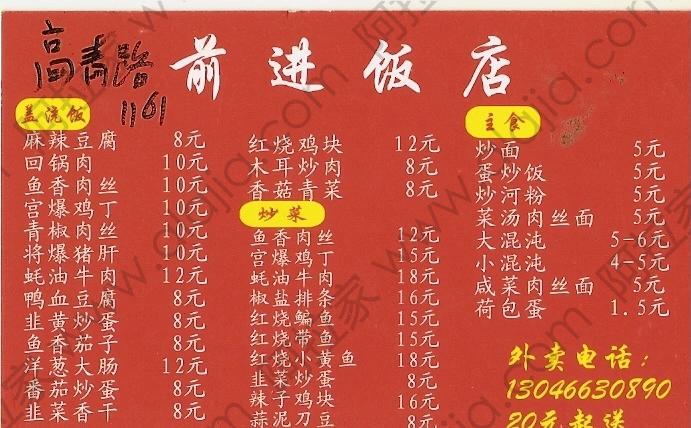 高青路
1161
前进饭店
盖浇饭
麻辣豆腐 8元
回锅肉 10元
鱼香肉丝 10元
宫爆鸡丁 10元
青椒肉丝 10元
将爆猪肝 10元
蚝油牛肉 12元
鸭血豆腐 8元
韭黄炒蛋 8元
鱼香茄子 8元
洋葱大肠 12元
番茄炒蛋 8元
韭菜香干 8元
红烧鸡块 12元
木耳炒肉 8元
香菇青菜 8元
炒菜
鱼香肉丝 12元
宫爆鸡丁 15元
蚝油牛肉 18元
椒盐排条 16元
红烧鳊鱼 15元
红烧带鱼 15元
红烧小黄鱼 18元
韭菜炒蛋 8元
辣子鸡块 16元
蒜泥刀豆 8元
主食
炒面 5元
蛋炒饭 5元
炒河粉 5元
菜汤肉丝面 5元
大混沌 5-6元
小混沌 4-5元
咸菜肉丝面 5元
荷包蛋 1.5元
外卖电话:
13046630890
20元起送